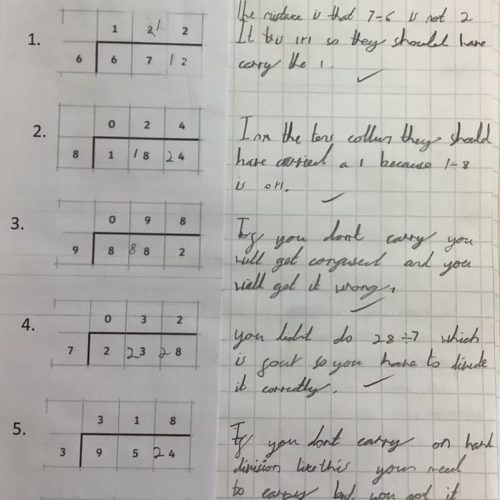 the mistake is that 7÷6 is not 2
It is 1r1 so they should have
carry the 1.
1.
1 2 1 2
6 6 7 1 2
2.
0 2 4
8 1 1 8 2 4
In the tens they should
have carried a 1 because 1÷8
is
3.
0 9 8
9 8 8 8 2
If you dont carry you
will get confused and you
will get it wrong.
4.
0 3 2
7 2 2 3 2 8
you didnt do 28÷7 which
is so you have to divide
it correctly.
5.
3 1 8
3 9 5 2 4
If you dont carry on hard
division like this your need
to carry but you got it